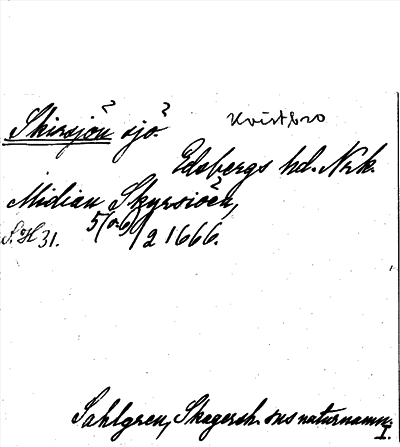 Skirsjön? sjö?
Kvistbro
Edsbergs hd. Nrk.
Midian Skyrsiöen,
S.H 31. 5/ 2 1666.
Sahlgren, Skagersh. sns naturnamn.
I.